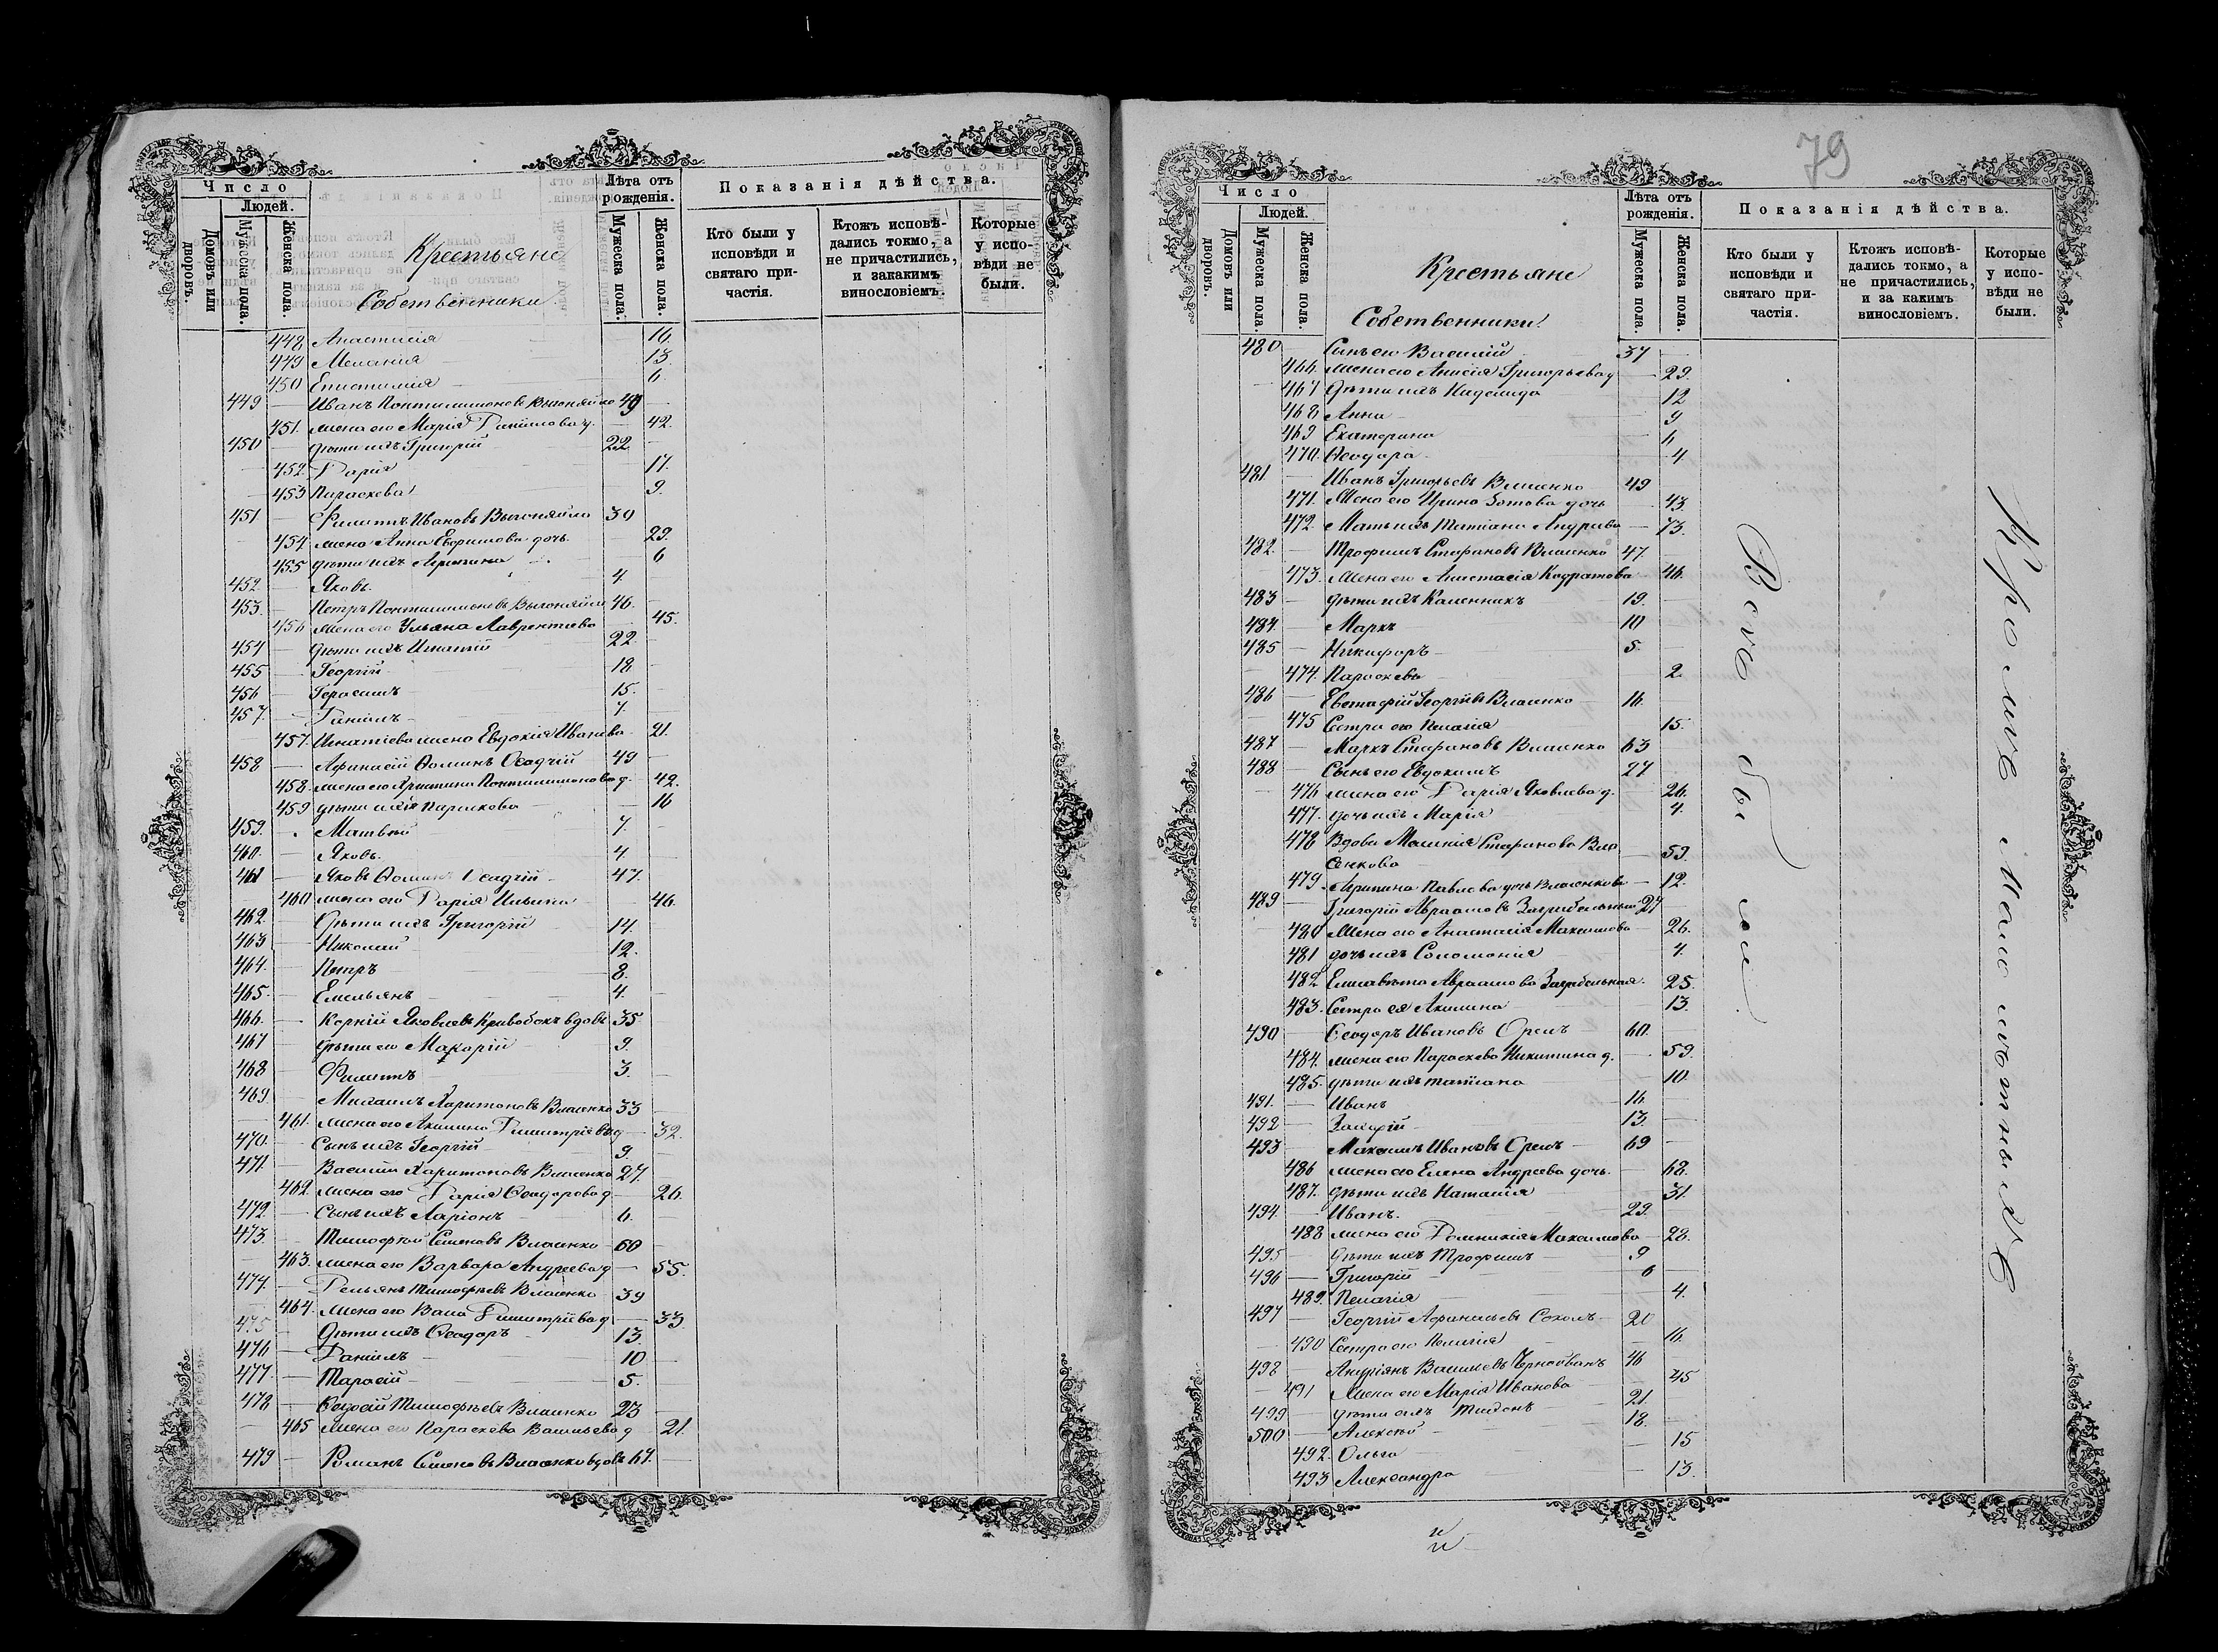 Число
Людей.
Домовъ или дворовъ.
Мужеска пола.
Женска пола.
Крестьяне
Собственники.
Лѣта отъ рожденія.
Мужеска пола.
Женска пола.
Показанія дѣйства.
Кто были у исповѣди и святаго причастія.
Ктожъ исповѣдались токмо, а не причастились, и закакимъ винословіемъ.
Которые у исповѣди не были.
448 Анастасія 16.
449 Меланія 13.
450 Епистимія 6.
449 Иванъ Пантилимоновъ 49
451. жена его Марія Даниилова д. 42.
450 дѣти ихъ Григорій 22
452. Дарія 17.
453 Параскева 9.
451 Филиппъ Ивановъ 30
454 жена Анна Ефримова дочь 29.
455 дѣти ихъ Агрипина 6
452 Яковъ. 4.
453. Петръ Пантилимоновъ 46.
456 жена его Ульяна Лаврентіева 45.
454 дѣти ихъ Игнатій 22
455 Георгій 18
456 Герасимъ 15.
457. Даніилъ 7.
457. Игнатіева жена Евдокія Иванова 21.
458 Афанасій Ѳоминъ Осадчій 49
458. жена его Христина Пантилимонова д. 42.
459 дѣти ихъ Параскева 16
459. Матвѣй 7.
460. Яковъ. 4.
461 Яковъ Ѳоминъ Осадчій 47.
460 жена его Дарія Ильина 46.
462. Дѣти ихъ Григорій 14.
463 Николай 12.
464. Петръ 8.
465. Емельянъ 4.
466. Корній Яковлевъ Кривобокъ вдовъ 35
467 дѣти его Макарій 9.
468 Филиппъ 3.
469 Михаилъ Харитоновъ Власенко 33
461. жена его Акилина Димитріева д 32.
470. Сынъ ихъ Георгій 9.
471. Василій Харитоновъ Власенко 27.
462. жена его Дарія Ѳеодорова д 26.
472. Сынъ ихъ Ларіонъ 6.
473. Тимофей Семеновъ Власенко 60
463. жена его Варвара Андреева д 55.
474. Демьянъ Тимофѣевъ Власенко 39
464. жена его Васса Димитріева д 33.
475 Дѣти ихъ Ѳеодоръ 13
476 Даніилъ 10
477. Тарасій 5.
478 Тимофѣевъ Власенко 23
465 жена его Параскева Васильева д 21.
479 Романъ Семеновъ Власенко вдовъ 67.
79
Число
Людей.
Домовъ или дворовъ.
Мужеска пола.
Женска пола.
Крестьяне
Собственники.
Лѣта отъ рожденія.
Мужеска пола.
Женска пола.
Показанія дѣйства.
Кто были у исповѣди и святаго причастія.
Ктожъ исповѣдались токмо, а не причастились, и за какимъ винословіемъ.
Которые у исповѣди не были.
480 Сынъ его Василій 37
466. жена его Анисія Григорьева д 29.
467 Дѣти ихъ 12
468 Анна 9
469 Екатерина 6
470. Ѳеодора 4.
481 Иванъ Григорьевъ Власенко 49
471. Жена его Ирина Зотова дочь 43.
472. Мать ихъ Татіана Андреева 73.
482. Трофимъ Стефановъ Власенко 47.
473. Жена его Анастасія Кодратова 46.
483 дѣти ихъ Калинникъ 19.
484. Маркъ 10
485 Никифоръ 5.
474. Параскева 2.
486 Евстафій Георгіевъ Власенко 16.
475 Сестра его Пелагія 15.
487 Маркъ Стефановъ Власенко 63
488 Сынъ его Евдокимъ 27
476 жена его Дарія Яковлева д. 26.
477. дочь ихъ Марія 4.
478 Вдова Меланія Стефанова Вла
сенкова 59.
479. Агрипина Павлова дочь Власенкова 12.
489 Григорій Авраамовъ Загребельный 27
480 Жена его Анастасія Максимова 26.
481 дочь ихъ Соломонія 4.
482 Елисавета Авраамова Загребельная. 25.
483. Сестра ея Акилина 13.
490 Ѳеодоръ Ивановъ Орелъ 60.
484. жена его Параскева Никитина д. 59.
485. дѣти ихъ Татіана 10.
491. Иванъ 16.
492 Захарій 13.
493 Максимъ Ивановъ Орелъ 69
486 жена его Елена Андреева дочь. 68.
487. дѣти ихъ Наталія 31.
494. Иванъ. 29.
488 жена его Домникія Максимова 28.
495. дѣти ихъ Трофимъ 9
496 Григорій 6
489. Пелагія 4.
497 Георгій Афанасьевъ Соколъ 20
490 Сестра его Пелагія 16.
498 Андріянъ Васильевъ 46
491 Жена его Марія Иванова 45
499 дѣти ихъ Тихонъ 21.
500 Алексѣй 18.
492. Ольга 15
493 Александра 13.
Всѣ были
Кромѣ малолѣтнихъ